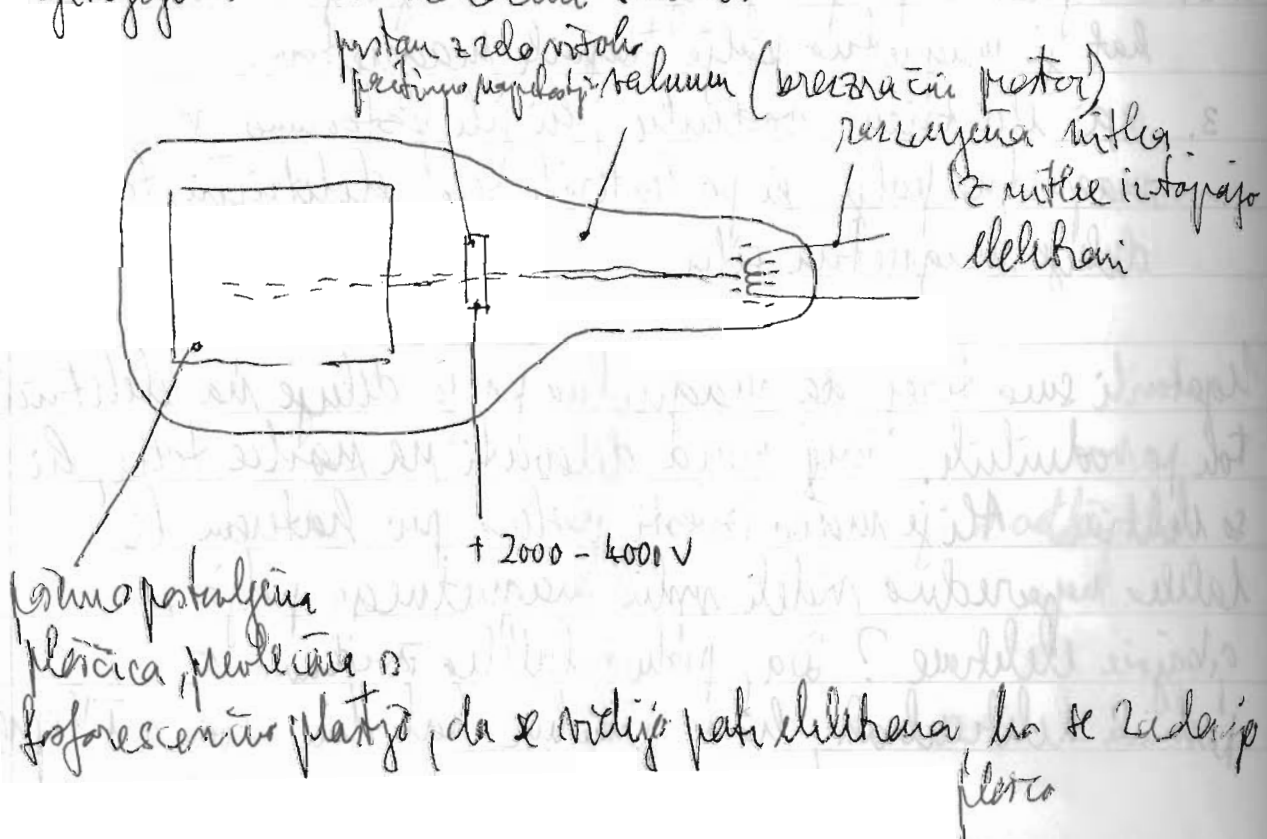 prstan z zelo visoko
pozitivno napetostjo
vakuum (brezzračni prostor)
razžarjena nitka
iz nitke izstopajo
elektroni
+ 2000 - 4000 V
postavljena
ploščica, prevlečena s
fosforescenčno plastjo, da se vidijo poti elektrona, ko se zadanejo
plošco